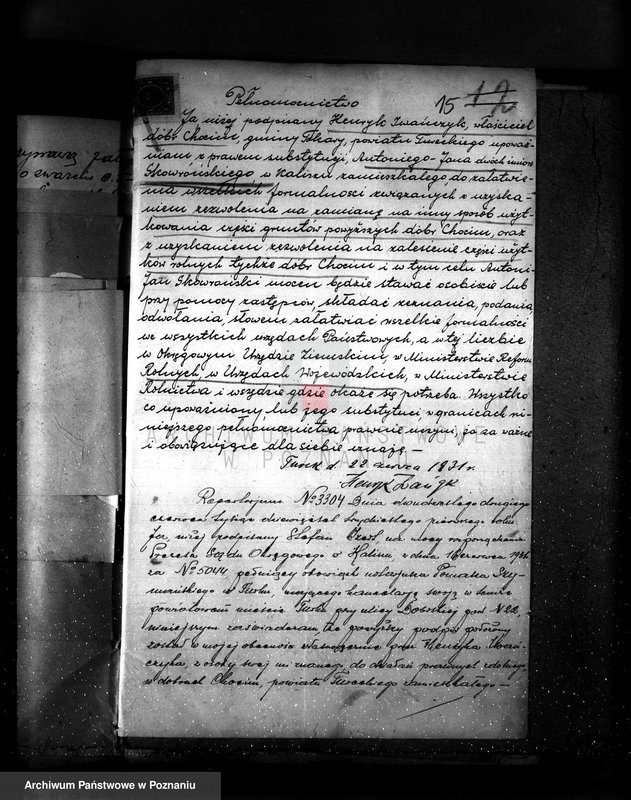 Pełnomocnictwo
15 12
Ja niżej podpisany Henryk Iwańczyk, właściciel
dóbr Chocim, gminy powiatu Tureckiego upoważ-
niam z prawem substytucji, Antoniego-Jana dwóch imion
Skowrońskiego w Kaliszu zamieszkałego do załatwie-
nia wszelkich formalności związanych z uzyska-
niem zezwolenia na zamianę na inny sposób użyt-
kowania części gruntów powyższych dóbr Chocim, oraz
z uzyskaniem zezwolenia na zalesienie części użyt-
ków rolnych tychże dóbr Chocim i w tym celu Antoni-
Jan Skowroński mocen będzie stawać osobiście lub
przy pomocy zastępców, składać zeznania, podania,
odwołania, słowem załatwiać wszelkie formalności
we wszystkich urzędach Państwowych, a w tej liczbie
w Okręgowym Urzędzie Ziemskim, w Ministerstwie Reform
Rolnych, w Urzędach Wojewódzkich, w Ministerstwie
Rolnictwa i wszędzie gdzie okaże się potrzeba. Wszystko
co upoważniony lub jego substytuci w granicach ni-
niejszego pełnomocnictwa prawnie uczyni, ja za ważne
i obowiązujące dla siebie uznaję. —
Turek d. 22 czerwca 1931 r.
Repertorjum № 3304 Dnia dwudziestego drugiego
czerwca tysiąc dziewięćset trzydziestego pierwszego roku
ja niżej podpisany Stefan na mocy rozporządzenia
Prezesa Sądu Okręgowego w Kaliszu z dnia czerwca
za № 5044, pełniący obowiązki notarjusza
w Turku, mającego kancelarję swoją w
powiatowem mieście Turku przy ulicy pod № 22,
niniejszym zaświadczam, że powyższy podpis położony
został w mojej obecności własnoręcznie przez Henryka Iwań-
czyka, z osoby swej mi znanego, do działań prawnych zdolnego,
w dobrach Chocim, powiatu Tureckiego zamieszkałego —
ARCHIWUM PAŃSTWOWE
W POZNANIU
Archiwum Państwowe w Poznaniu